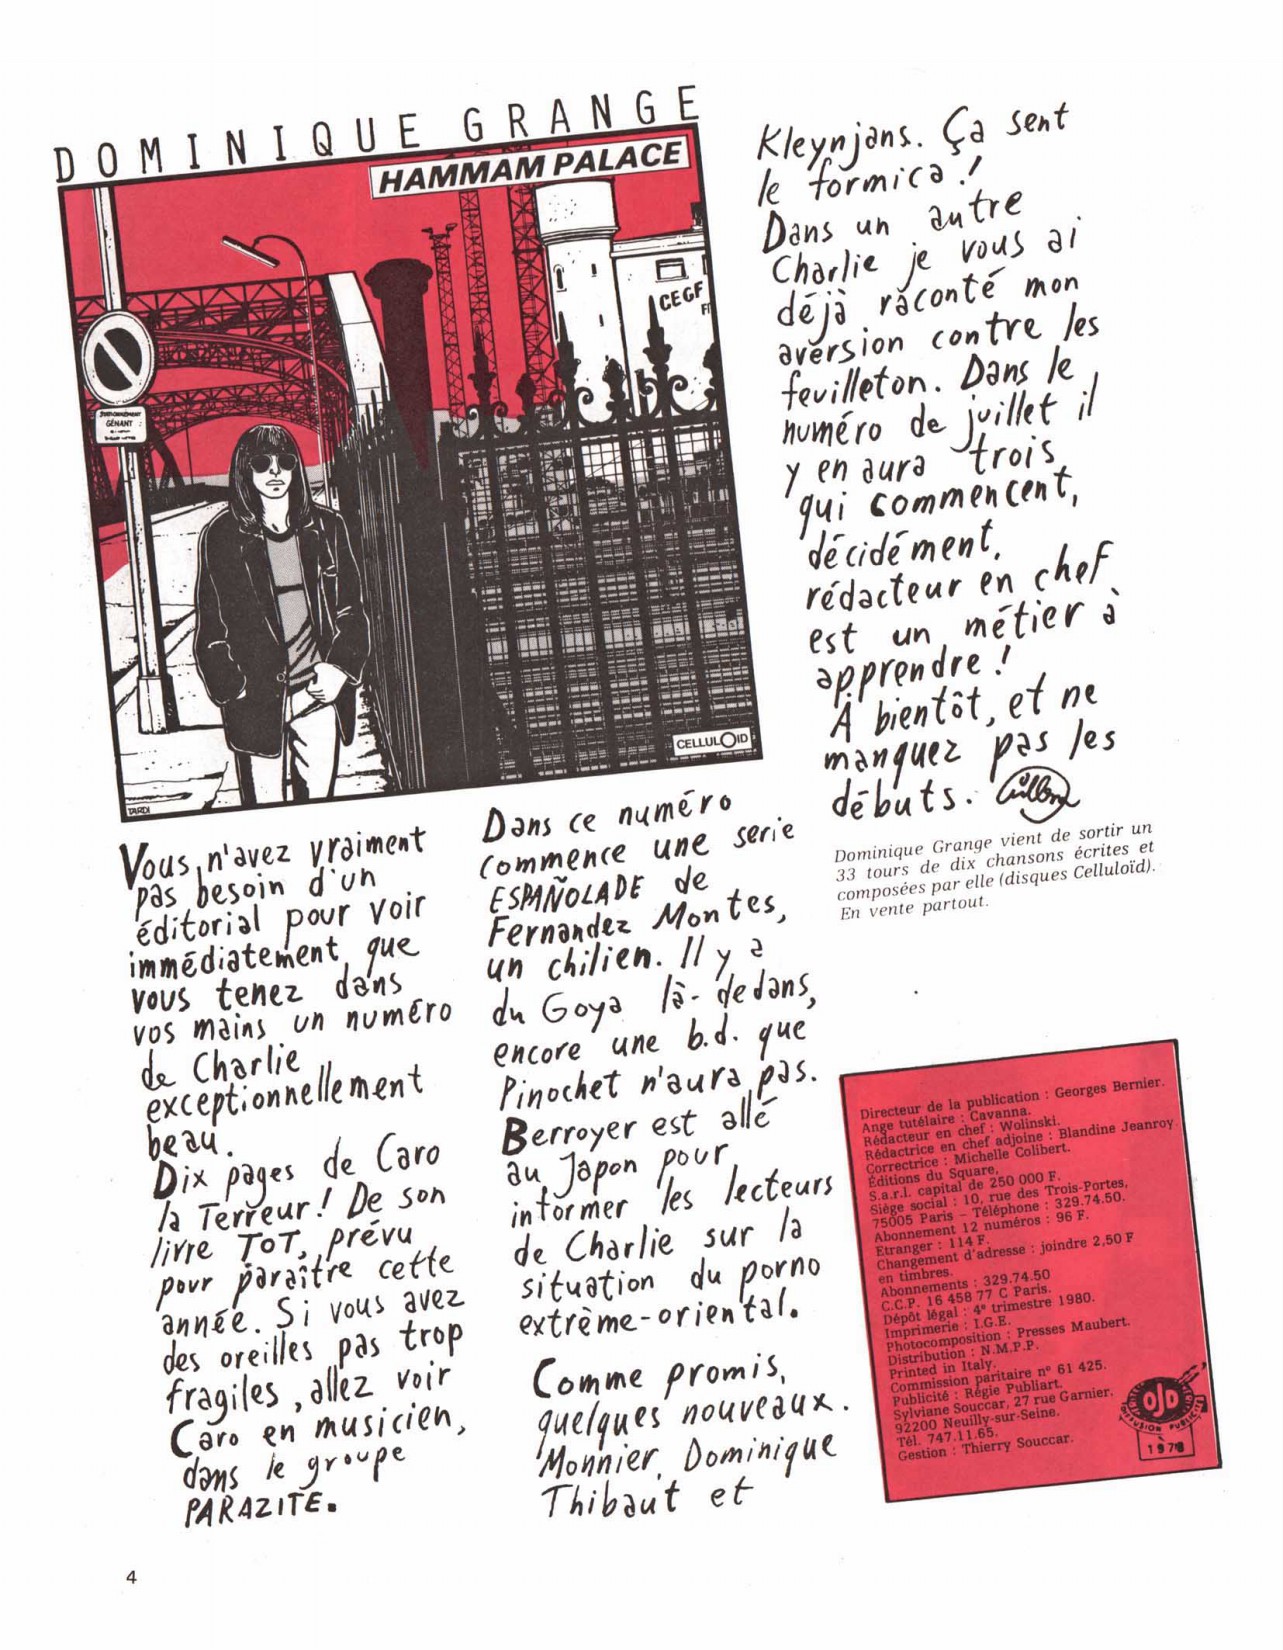 DOMINIQUE GRANGE
HAMMAM PALACE
CEGF
STATIONNEMENT
GÊNANT
CELLULOID
TARDI
Vous n'avez vraiment
pas besoin d'un
éditorial pour voir
immédiatement que
vous tenez dans
vos mains un numéro
de Charlie
exceptionnellement
beau.
Dix pages de Caro
la Terreur! De son
livre TOT, prévu
pour paraître cette
année. Si vous avez
des oreilles pas trop
fragiles, allez voir
Caro en musicien,
dans le groupe
PARAZITE.
Dans ce numéro
commence une serie
ESPAÑOLADE de
Fernandez Montes,
un chilien. Il y a
du Goya là-dedans,
encore une b.d. que
Pinochet n'aura pas.
Berroyer est allé
au Japon pour
informer les lecteurs
de Charlie sur la
situation du porno
extrème-oriental.
Comme promis,
quelques nouveaux.
Monnier, Dominique
Thibaut et
Kleynjans. Ça sent
le formica!
Dans un autre
Charlie je vous ai
déjà raconté mon
aversion contre les
feuilleton. Dans le
numéro de juillet il
y en aura trois
qui commencent,
décidément,
rédacteur en chef
est un métier à
apprendre!
À bientôt, et ne
manquez pas les
débuts.
Dominique Grange vient de sortir un
33 tours de dix chansons écrites et
composées par elle (disques Celluloïd).
En vente partout.
Directeur de la publication : Georges Bernier.
Ange tutélaire : Cavanna.
Rédacteur en chef : Wolinski.
Rédactrice en chef adjoine : Blandine Jeanroy
Correctrice : Michelle Colibert.
Éditions du Square,
S.a.r.l. capital de 250 000 F.
Siège social : 10, rue des Trois-Portes,
75005 Paris – Téléphone : 329.74.50.
Abonnement 12 numéros : 96 F.
Etranger : 114 F.
Changement d'adresse : joindre 2,50 F
en timbres.
Abonnements : 329.74.50
C.C.P. 16 458 77 C Paris.
Dépôt légal : 4e trimestre 1980.
Imprimerie : I.G.E.
Photocomposition : Presses Maubert.
Distribution : N.M.P.P.
Printed in Italy.
Commission paritaire n° 61 425.
Publicité : Régie Publiart.
Sylviane Souccar, 27 rue Garnier,
92200 Neuilly-sur-Seine.
Tél. 747.11.65.
Gestion : Thierry Souccar.
OJD
DIFFUSION PUBLICITÉ
4